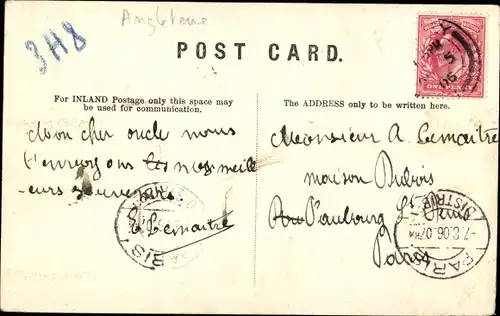 Angleterre
3H8
POST CARD.
ONE PENNY
For INLAND Postage only this space may
be used for communication.
The ADDRESS only to be written here.
Mon cher oncle nous
t'envoyons nos meille
eurs souvenirs.
E Lemaitre
Monsieur A. Lemaitre
maison Dubois
Faubourg St Denis
Paris
PARIS
DISTRIB
7-8.06